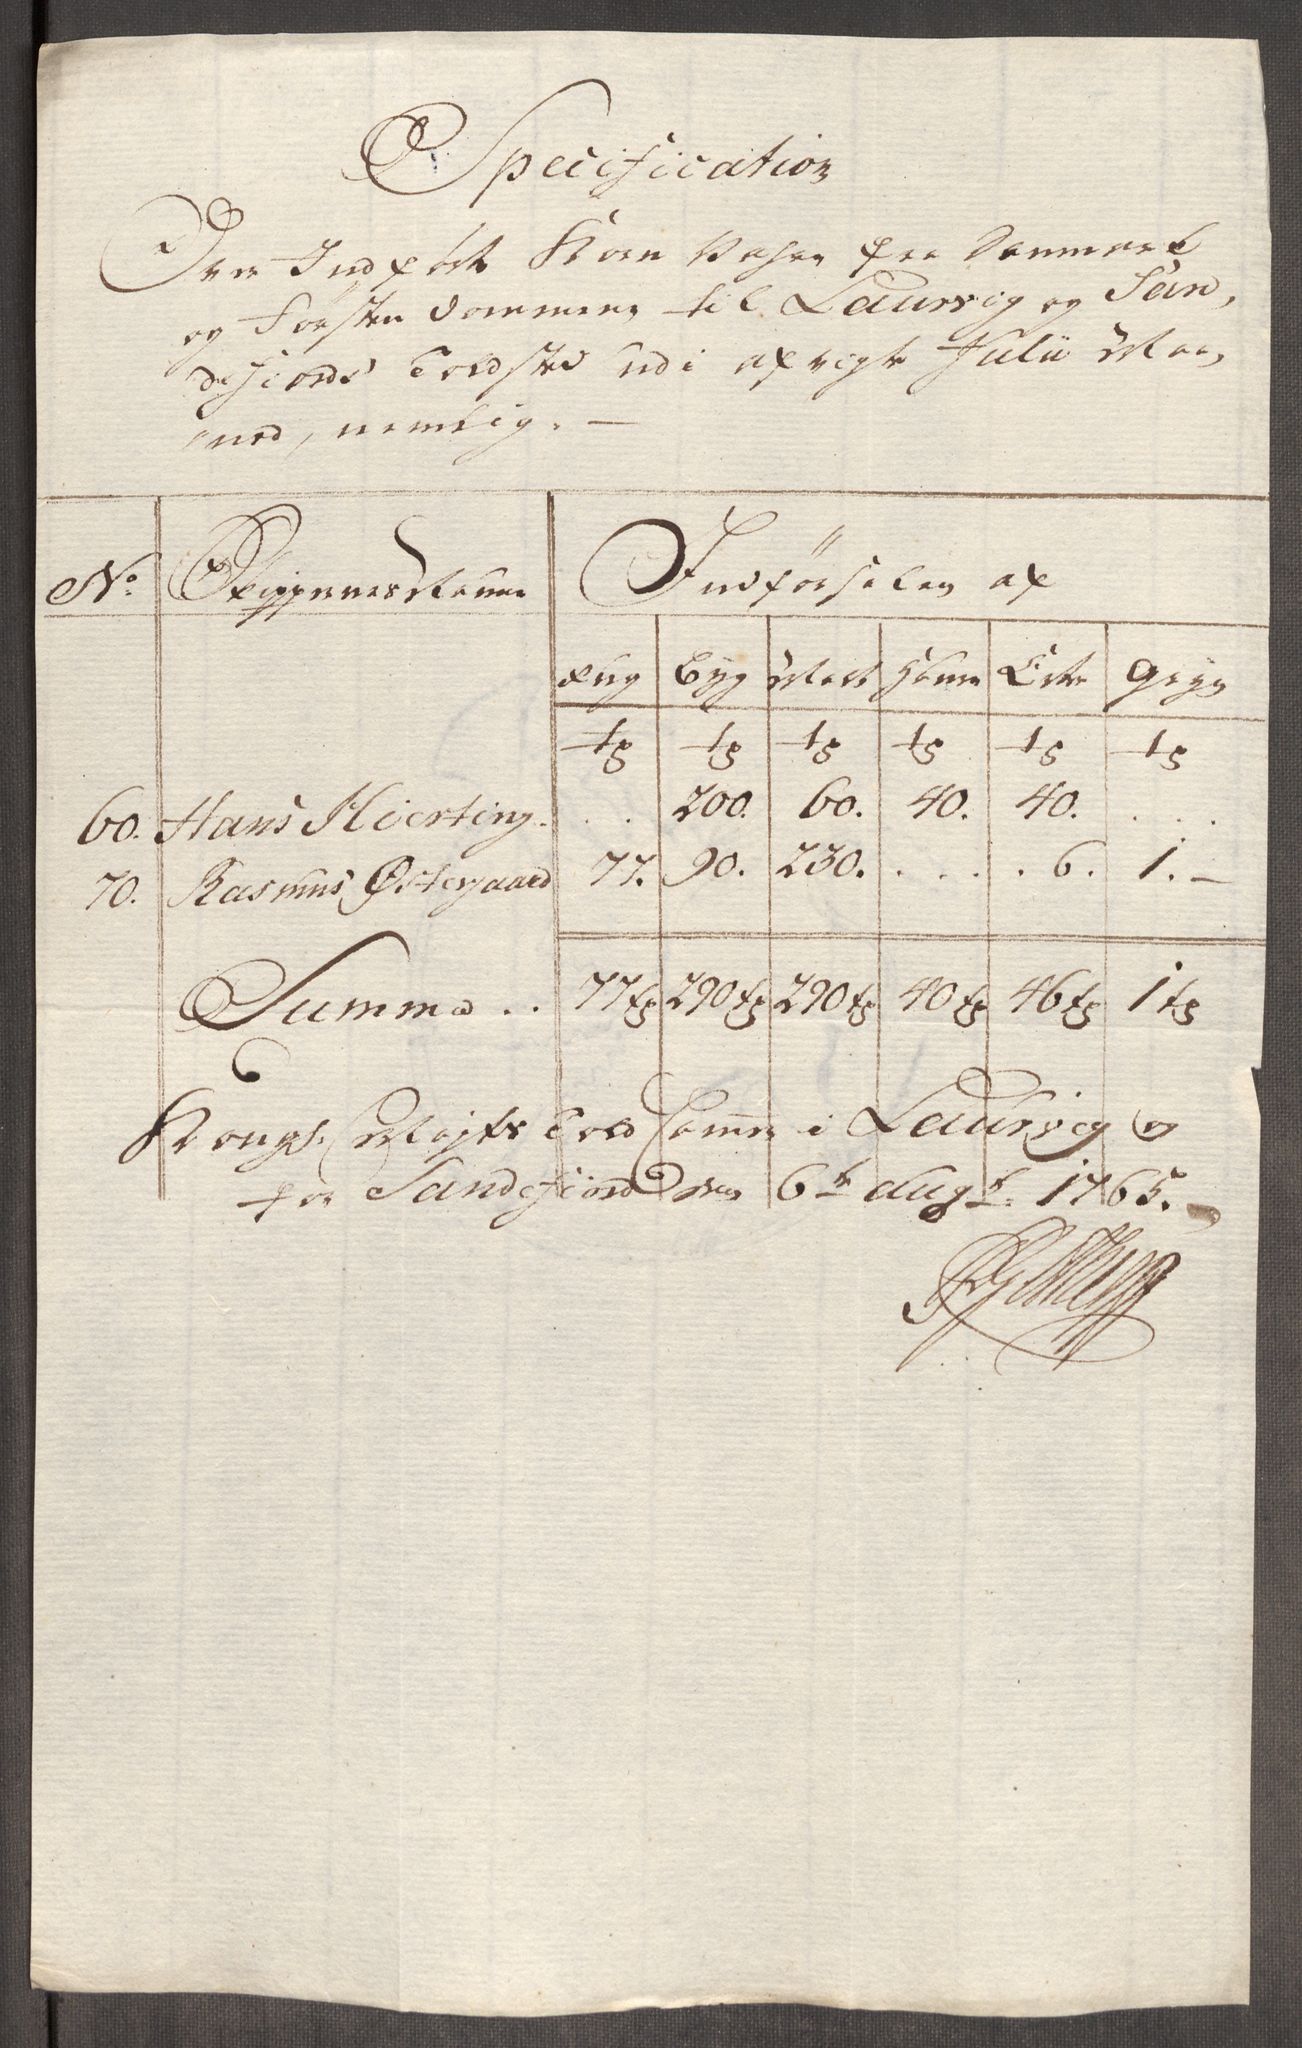 Specification
Over Indført Korn Vahre fra Danmark
og Førstendommene til Laurvig og San,
defiords Toldsted udi afvigte Julii Maa,
ned, nemlig. —
No. Skippernes Nafne Indførselen af
Rug Byg Malt Hafre Erter Gryn
tr tr tr tr tr tr
60. Hans Hierting . . . 200. 60. 40. 40. . . .
70. Rasmus Østergaard 77. 90. 230. . . . . 6. 1. —
Summa . . 77 tr 290 tr 290 tr 40 tr 46 tr 1 tr
Kongl. Mayts Told Camer i Laurvig og
for Sandefiord den 6te Augt. 1765.